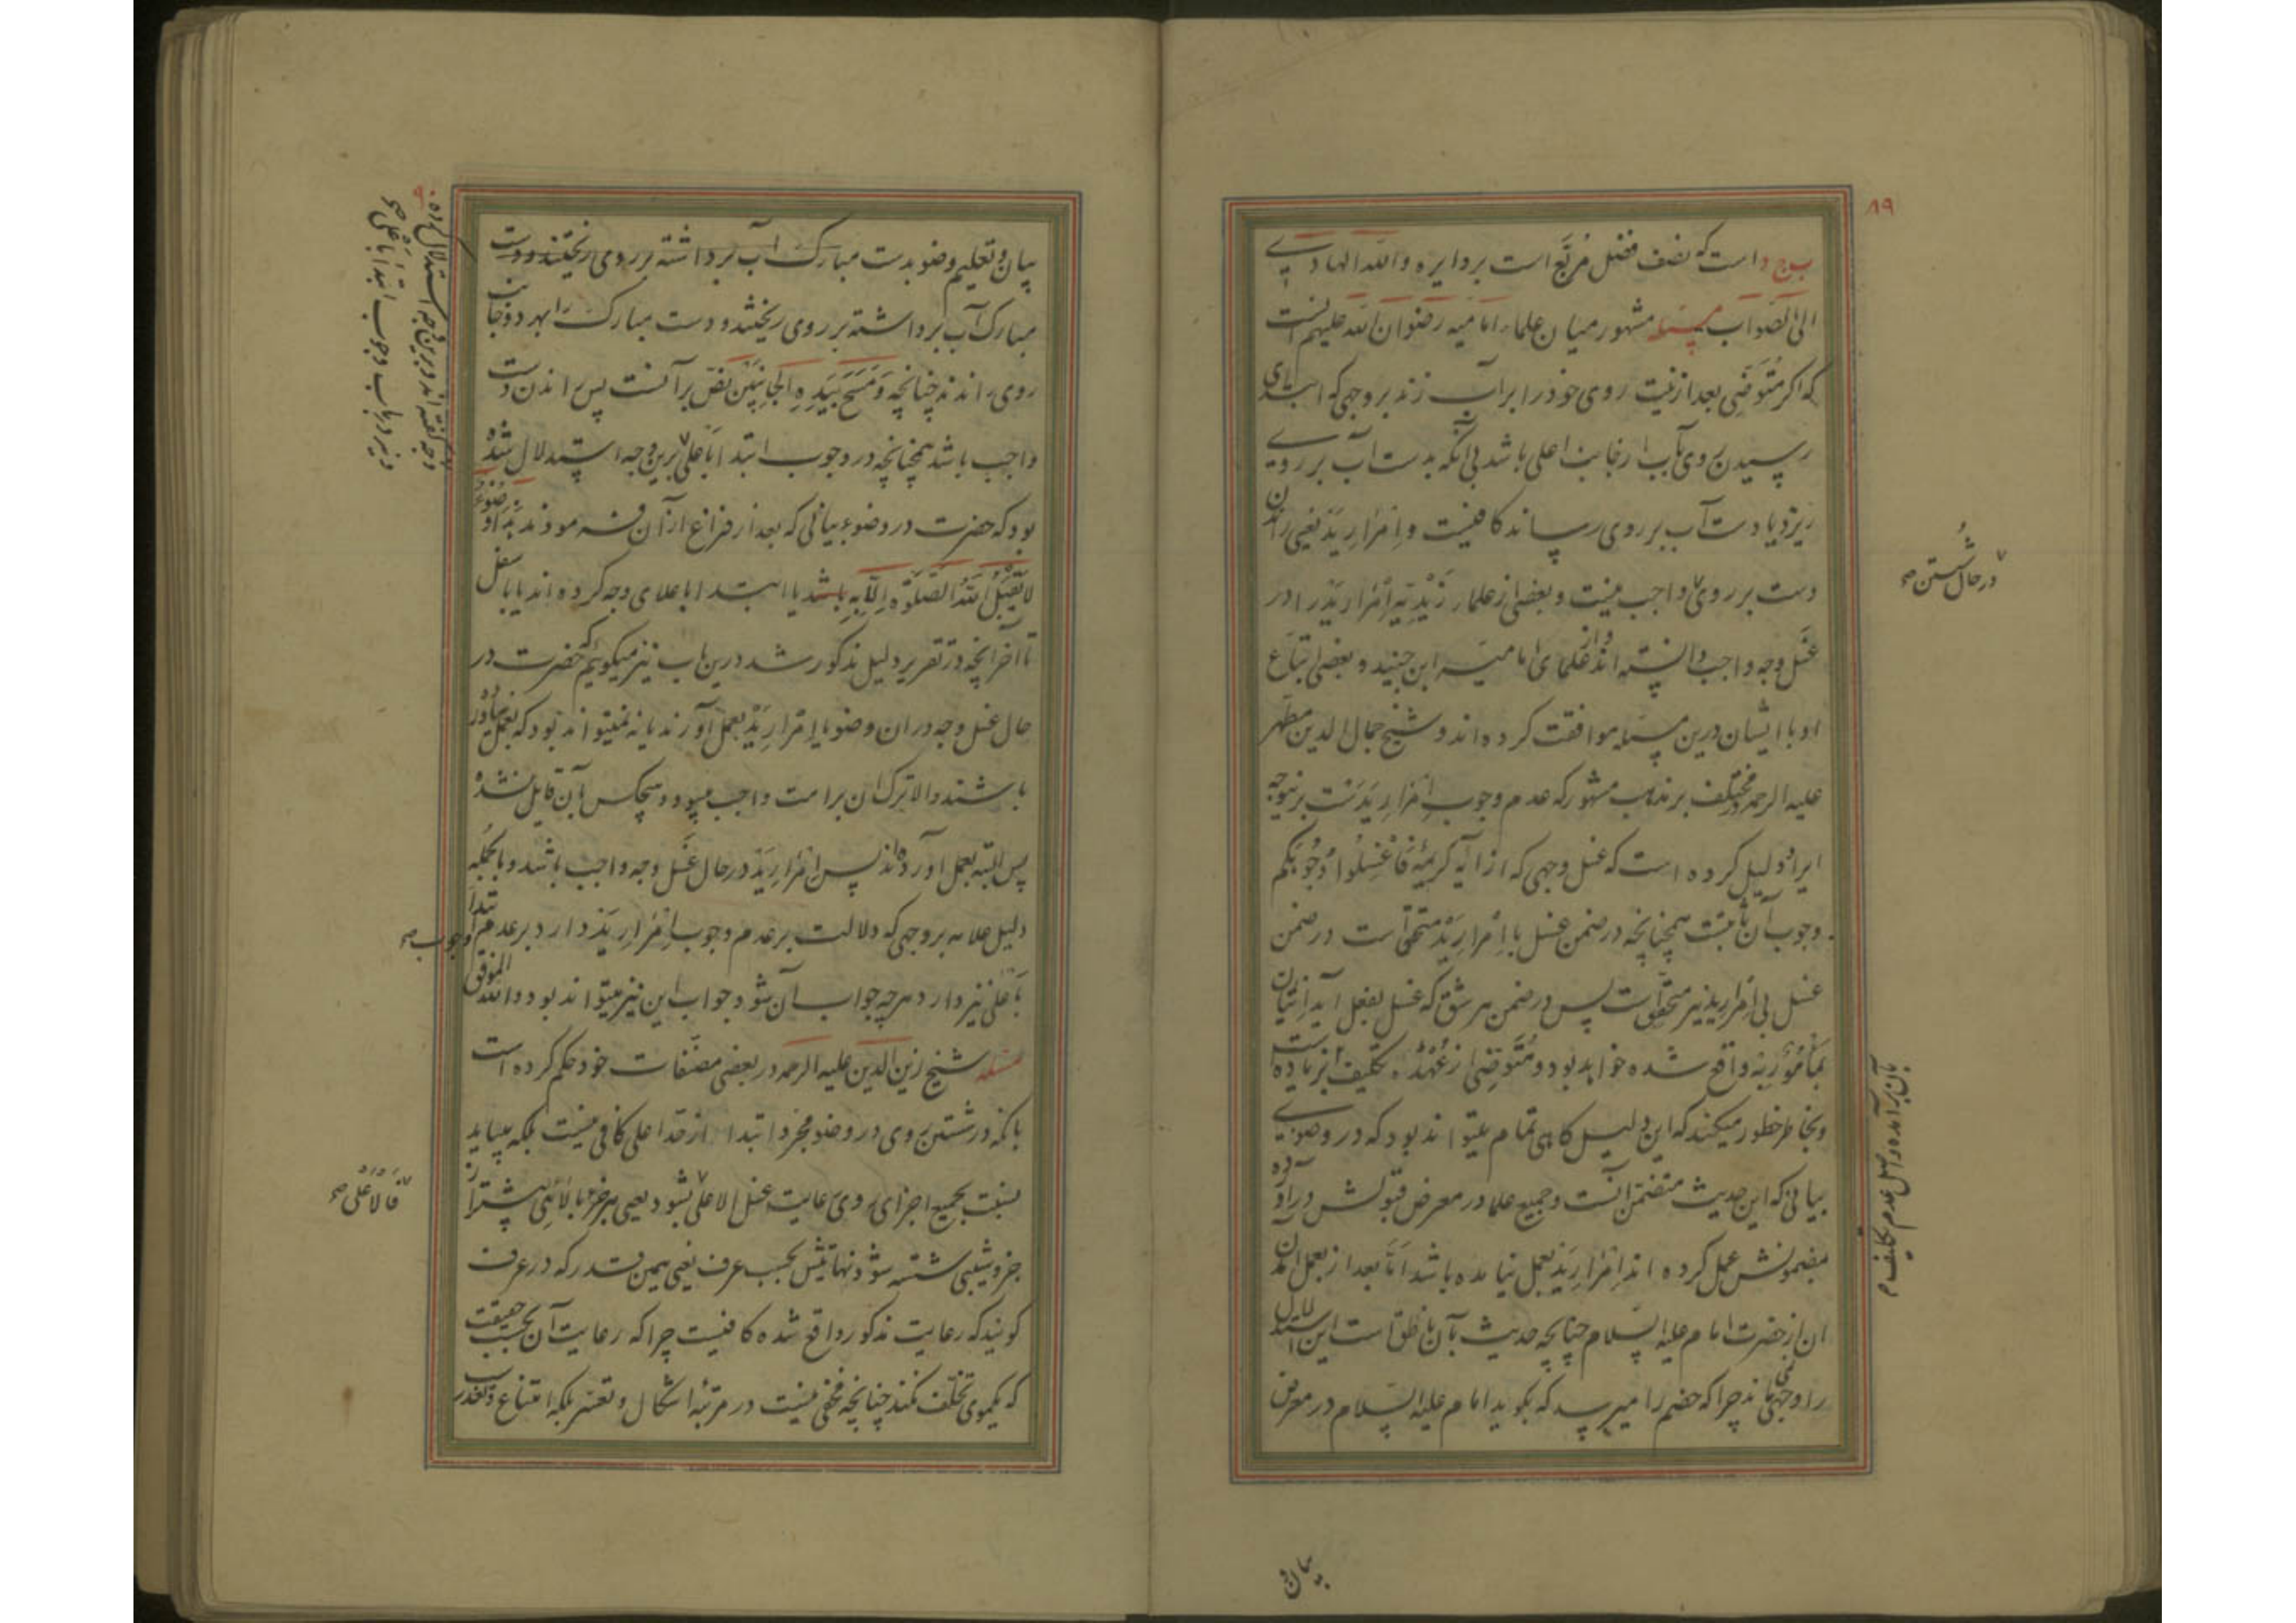 ۸۹
ب ج د است که نصف فضل مربّع است بر دایره والله الهادی
الی الصواب مسئله مشهور میان علماء امامیه رضوان الله علیهم آنست
که اگر متوضّی بعد از نیّت روی خود را بر آب زند بر وجهی که ابتدای
رسیدن روی بآب از جانب اعلی باشد بی آنکه بدست آب بر روی
ریزد یا دست آب بر روی رساند کافیست و اِمْرارِ یَدْ یعنی راندن
دست بر روی واجب نیست و بعضی از علماء زَیْدِیّه اِمْرار یَدْ را در
در حال شُستن صح
غَسل وجه واجب دانسته اند و از علمای امامیّه ابن جنید و بعضی اتباع
او با ایشان درین مسئله موافقت کرده اند و شیخ جمال الدین مطهّر
علیه الرحمه در مختلف بر مذهب مشهور که عدم وجوب اِمْرارِ یَدَسْت برینوجه
ایراد دلیل کرده است که غسل وجهی که از آیه کریمهٔ فَاغْسِلُوا وُجُوهَکم
وجوب آن ثابتست همچنانچه در ضمن غسل با اِمْرارِ یَدْ متحقّق است در ضمن
غسل بی اِمْرارِ ید نیز متحقّق است پس در ضمن هر شق که غسل بفعل آید اِتیان
بمأمُورٌ بِه واقع شده خواهد بود و مُتَوضّی از عُهْدهٔ تکلیف
بآن برآمده و اصل عدم تکلیف م
و بخاطر خطور میکند که این دلیل گاهی تمام میتواند بود که در وضوی
بیانی که این حدیث متضمّن آنست و جمیع علما در معرض قبولش درآورده
بمضمونش عمل کرده اند اِمْرارِ یَدْ بعمل نیامده باشد امّا بعد از بعمل آمدن
آن از حضرت امام علیه السّلام چنانچه حدیث بآن ناطق است این استدلال
را وجهی نماند چرا که خصم را میرسد که بگوید امام علیه السّلام در معرض
بیان و
۹۰
بیان و تعلیم وضو بدست مبارک آب برداشته بر روی ریختند و دست
مبارک آب برداشته بر روی ریختند و دست مبارک را بهر دو جانب
روی راندند چنانچه وَمَسَحَ بِیَدِهِ الجانِبَیْن نصّ بر آنست پس راندن دست
واجب باشد همچنانچه در وجوب ابتدا باَعلی برین وجه استدلال شده
وجه گفته اند و برین وجه استدلال کرده
و نیز در باب وجوب ابتدا باَعلی صح
بود که حضرت در وضوء بیانی که بعد از فراغ از آن فرمودند هذا وُضوءٌ
لا یَقْبَلُ اللهُ الصَّلوٰةَ اِلّا بِهِ باشد یا ابتدا باعلای وجه کرده اند یا باسفل
تا آخر آنچه در تقریر دلیل مذکور شد درین باب نیز میگوئیم که حضرت در
حال غسل وجه در آن وضو یا اِمْرارِ یَدْ بعمل آورند یا نه نمیتواند بود که بعمل نیاورده
باشند والا ترک آن بر امت واجب میبود و هیچکس بآن قایل نشده
پس البته بعمل آورده اند پس اِمْرارِ یَدْ در حال غَسل وجه واجب باشد و بالجمله
دلیل علامه بر وجهی که دلالت بر عدم وجوب اِمْرارِ یَدْ دارد بر عدم ابتدا
وجوب صح
باَعلی نیز دارد هر چه جواب آن شود جواب این نیز میتواند بود والله الموفق
مسئله شیخ زین الدین علیه الرحمه در بعضی مصنّفات خود حکم کرده است
بآنکه در شستن روی در وضو مجرد ابتدا از حد اعلی کافی نیست بلکه میباید
نسبت بجمیع اجزای روی رعایت غسل الاعلی بشود یعنی هر جزء بالائی پیشتر از
فالاَعلی صح
جزو شیبی شسته شود نهایتش بحسب عرف یعنی همین قدر که در عرف
گویند که رعایت مذکور واقع شده کافیست چرا که رعایت آن بحسب حقیقت
که یکموی تخلّف نکند چنانچه مخفی نیست در مرتبهٔ اشکال و تعسّر بلکه امتناع و تعذر